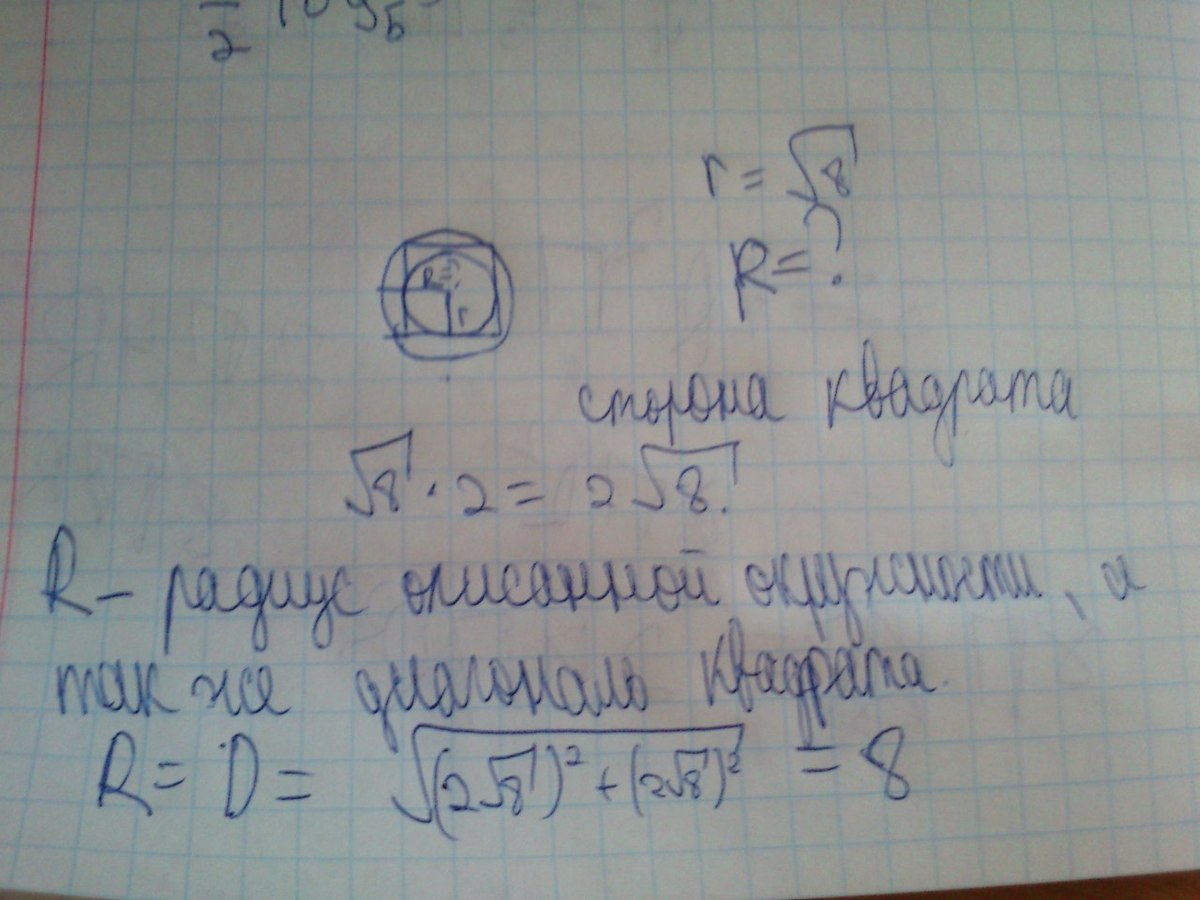 1/2 log₅
r = √8
R = ?
R=?
r
сторона квадрата
√8 · 2 = 2√8.
R – радиус описанной окружности, а
так же диагональ квадрата.
R = D = √((2√8)² + (2√8)²) = 8